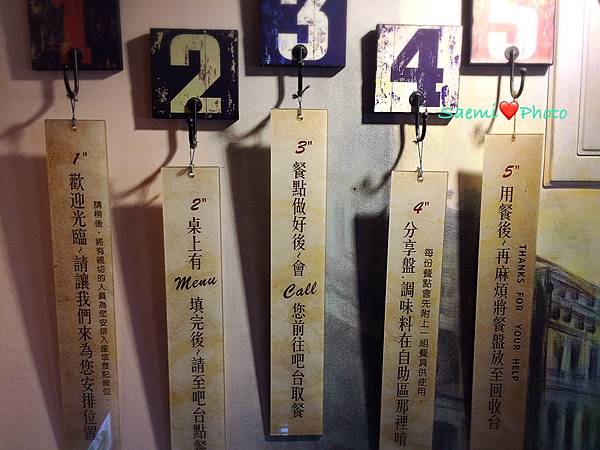 1
2
3
4
5
Saemi❤Photo
1"
歡迎光臨~請讓我們來為您安排位置
請稍後，將有親切的人員為您安排入座或登記候位。
2"
桌上有 Menu 填完後~請至吧台點餐
3"
餐點做好後~會 Call 您前往吧台取餐
4"
分享盤.調味料在自助區那裡唷
每份餐點會先附上一組餐具供使用。
5"
用餐後~再麻煩將餐盤放至回收台
THANKS FOR YOUR HELP